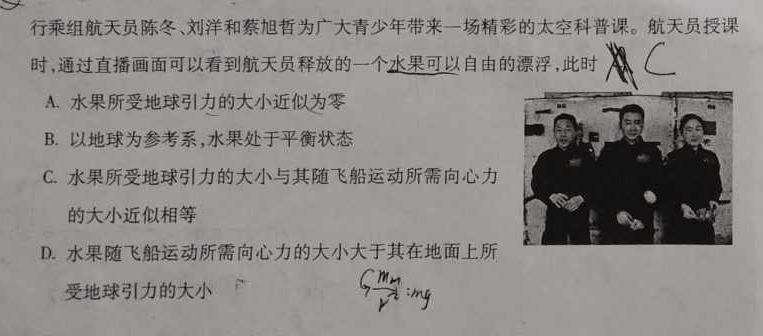 行乘组航天员陈冬、刘洋和蔡旭哲为广大青少年带来一场精彩的太空科普课。航天员授课
时,通过直播画面可以看到航天员释放的一个水果可以自由的漂浮,此时 C
A. 水果所受地球引力的大小近似为零
B. 以地球为参考系,水果处于平衡状态
C. 水果所受地球引力的大小与其随飞船运动所需向心力
的大小近似相等
D. 水果随飞船运动所需向心力的大小大于其在地面上所
受地球引力的大小